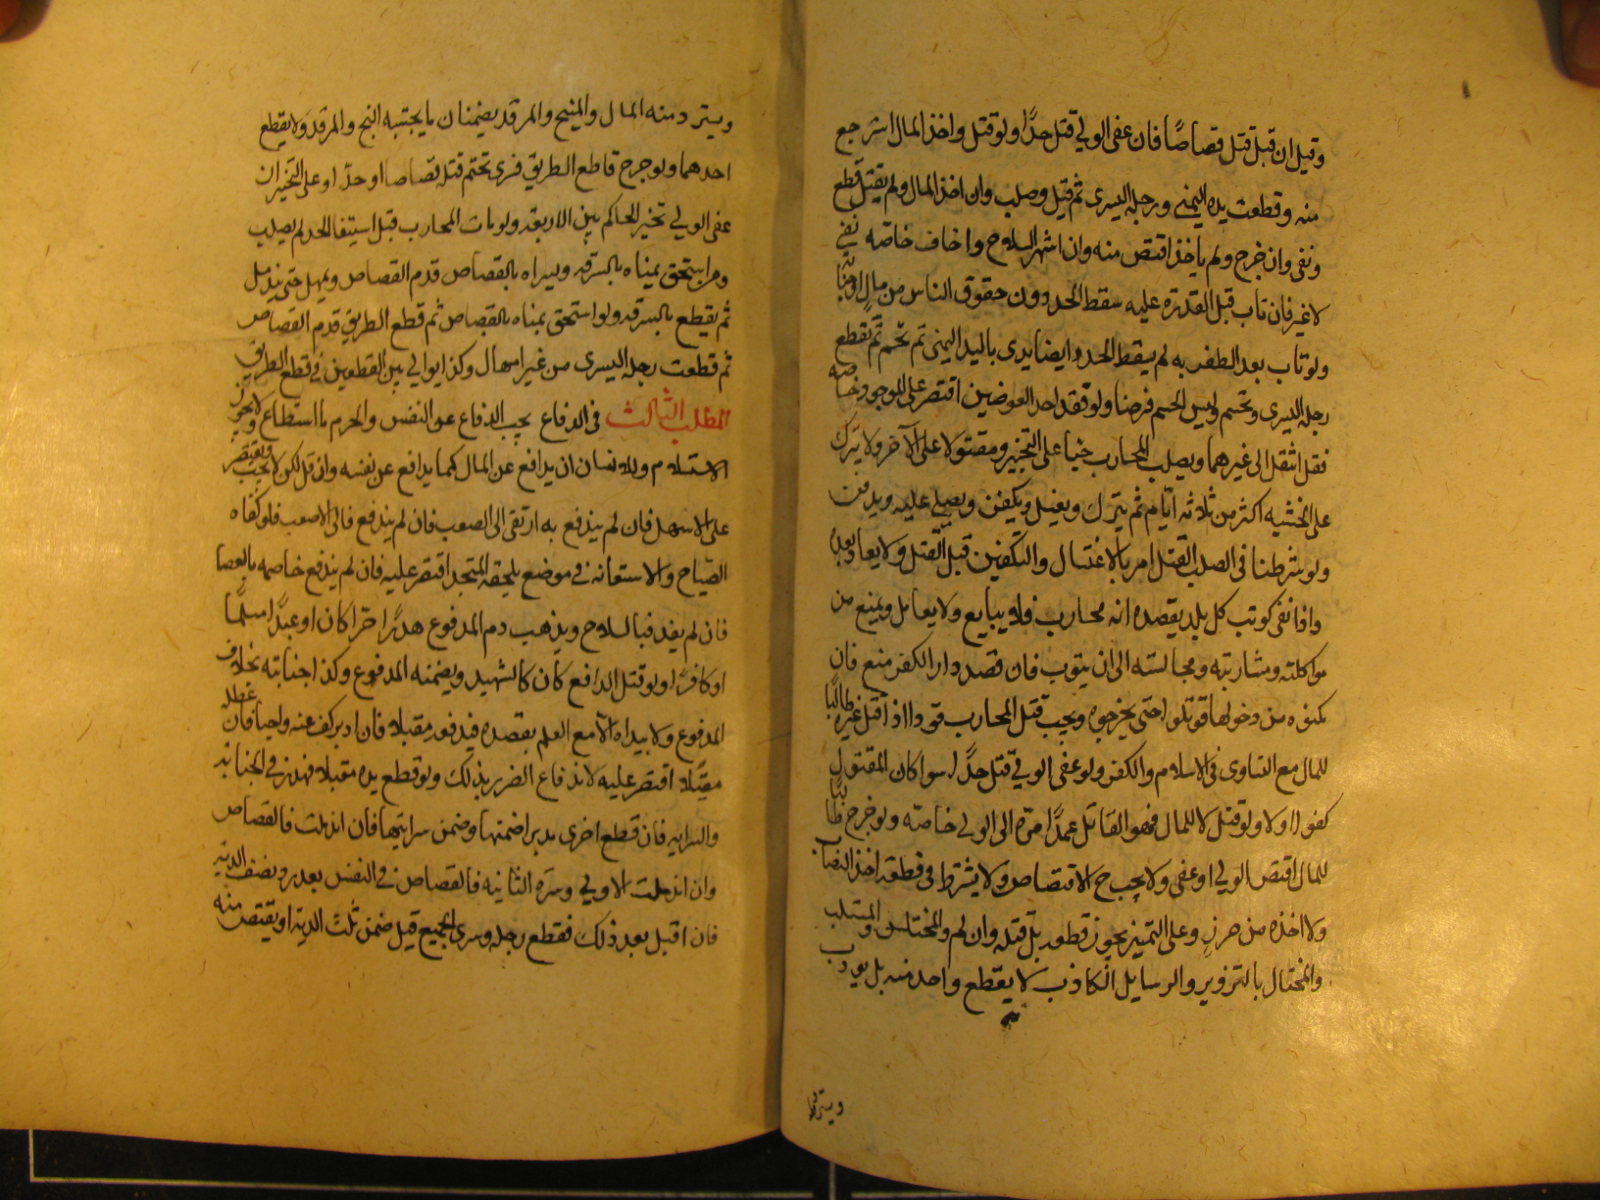 وقيل ان قتل قتل قصاصًا فان عفى الولي قتل حدًّا ولو قتل واخذ المال استرجع
منه وقطعت يده اليمنى ورجله اليسرى ثم قتل وصلب وان اخذ المال ولم يقتل قطع
ونفى وان جرح ولم ياخذ اقتص منه وان اشهر السلاح واخاف خاصة نفي
لا غير فان تاب قبل القدرة عليه سقط الحد دون حقوق الناس من مال او جناية
ولو تاب بعد الظفر به لم يسقط الحد وايضا يبدى باليد اليمنى ثم تحسم ثم يقطع
رجله اليسرى وتحسم وليس الحسم فرضا ولو فقد احد العضوين اقتصر على الموجود خاصة
فقد انتقل الى غيرهما ويصلب المحارب حيا على التخيير ومقتولا على الآخر ولا يترك
على الخشبة اكثر من ثلاثة ايام ثم ينزل ويغسل ويكفن ويصلى عليه ويدفن
ولو شرطنا في الصلب القتل امر بالاغتسال والتكفين قبل القتل ولا يعاد بعده
واذا نفى كوتب كل بلد يقصده انه محارب فلا يبايع ولا يعامل ويمنع من
مواكلته ومشاربته ومجالسته الى ان يتوب فان قصد دار الكفر منع فان
مكنوه من دخولها قوتلوا حتى يخرجوه ويجب قتل المحارب قودا اذا قتل غيره طالبًا
للمال مع التساوى في الاسلام والكفر ولو عفى الولي قتل حدًّا سوا كان المقتول
كفوا او لا ولو قتل لا للمال فهو القاتل عمدًا امره الى الولي خاصة ولو جرح طالبًا
للمال اقتص الولي او عفى ولا يجب ح الاقتصاص ولا يشترط في قطعه اخذ النصاب
ولا اخذه من حرز وعلى التخيير يجوز قطعه بل قتله وان لم والمختلس والمستلب
والمحتال بالتزوير والرسايل الكاذب لا يقطع واحد منه بل يودب
ويسترد
ويسترد منه المال والمبنج والمرقد يضمنان ما يجنيه البنج والمرقد ولا يقطع
احدهما ولو جرح قاطع الطريق فسرى تحتم قتله قصاصا او حدّا وعلى التخير ان
عفى الولي تخير الحاكم بين الاربعة ولو مات المحارب قبل استيفا الحد لم يصلب
ومن استحق يمناه بالسرقه ويسراه بالقصاص قدم القصاص ويمهل حتى يندمل
ثم يقطع بالسرقه ولو استحق يمناه بالقصاص ثم قطع الطريق قدم القصاص
ثم قطعت رجله اليسرى من غير امهال وكذا يوالي بين القطعين في قطع الطريق
المطلب الثالث في الدفاع يجب الدفاع عن النفس والحريم ما استطاع ولا يجوز
الاستسلام وللانسان ان يدافع عن المال كما يدافع عن نفسه وان قل لكن لا يجب ويقتصر
على الاسهل فان لم يندفع به ارتقى الى الصعب فان لم يندفع فالى الاصعب فلو كفاه
الصياح والاستعانه في موضع يلحقه المنجد اقتصر عليه فان لم يندفع خاصمه بالعصا
فان لم يفد فبالسلاح ويذهب دم المدفوع هدرًا حرّا كان او عبدًا مسلمًا
او كافرًا ولو قتل الدافع كان كالشهيد ويضمنه المدفوع وكذا جنايته بخلاف
المدفوع ولا يبداه الّا مع العلم بقصده فيدفعه مقبلا فان ادبر كف عنه واجبا فان عطله
مقبلا اقتصر عليه لاندفاع الضرر بذلك ولو قطع يده مقبلا فهدر في الجناية
والسراية فان قطع اخرى مدبرا ضمنها وضمن سرايتها فان اندملت فالقصاص
وان اندملت الاولي وسرت الثانيه فالقصاص في النفس بعد رد نصف الدية
فان اقبل بعد ذلك فقطع رجله وسرى الجميع قيل ضمن ثلث الدية او يقتص منه